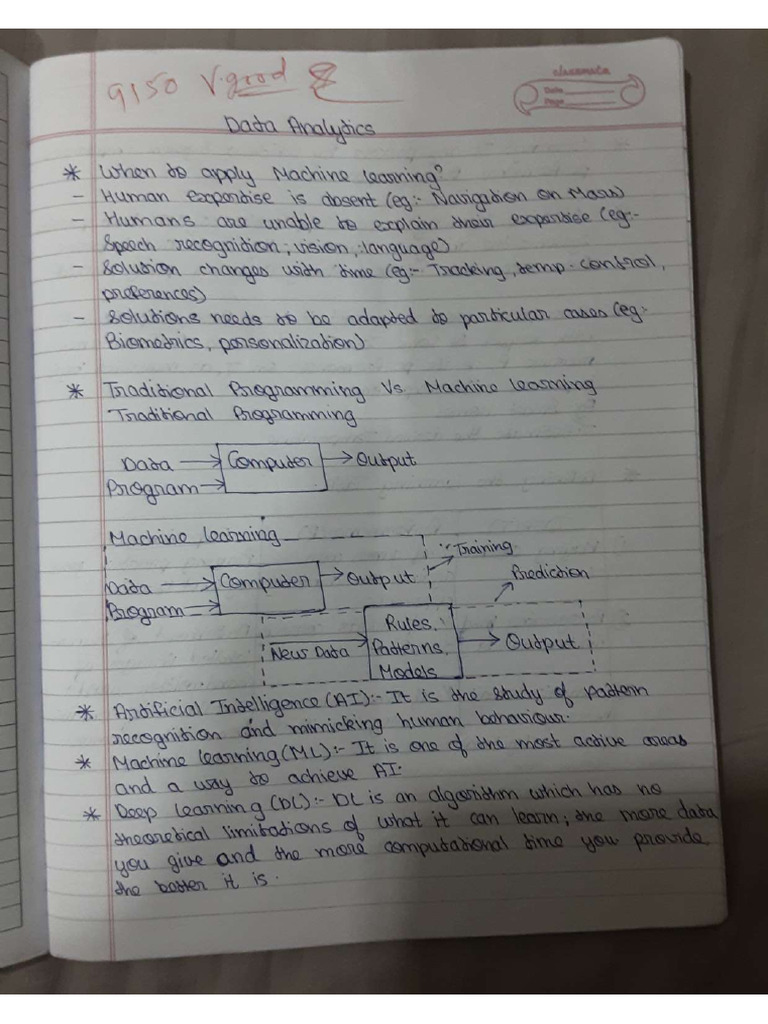 9150 V.good
classmate
Date
Page
Data Analytics
* When to apply Machine learning?
- Human expertise is absent (eg:- Navigation on Mars)
- Humans are unable to explain their expertise (eg:-
Speech recognition, vision, language)
- Solution changes with time (eg:- Tracking, temp. control,
preferences)
- Solutions needs to be adapted to particular cases (eg:-
Biometrics, personalization)
* Traditional Programming Vs Machine learning
Traditional Programming
Data → Computer → Output
Program →
Machine learning
Training
Data → Computer → Output
Prediction
Program →
Rules,
New Data Patterns, → Output
Models
* Artificial Intelligence (AI):- It is the study of pattern
recognition and mimicking human behaviour.
* Machine learning (ML):- It is one of the most active areas
and a way to achieve AI.
* Deep learning (DL):- DL is an algorithm which has no
theoretical limitations of what it can learn; the more data
you give and the more computational time you provide
the better it is.